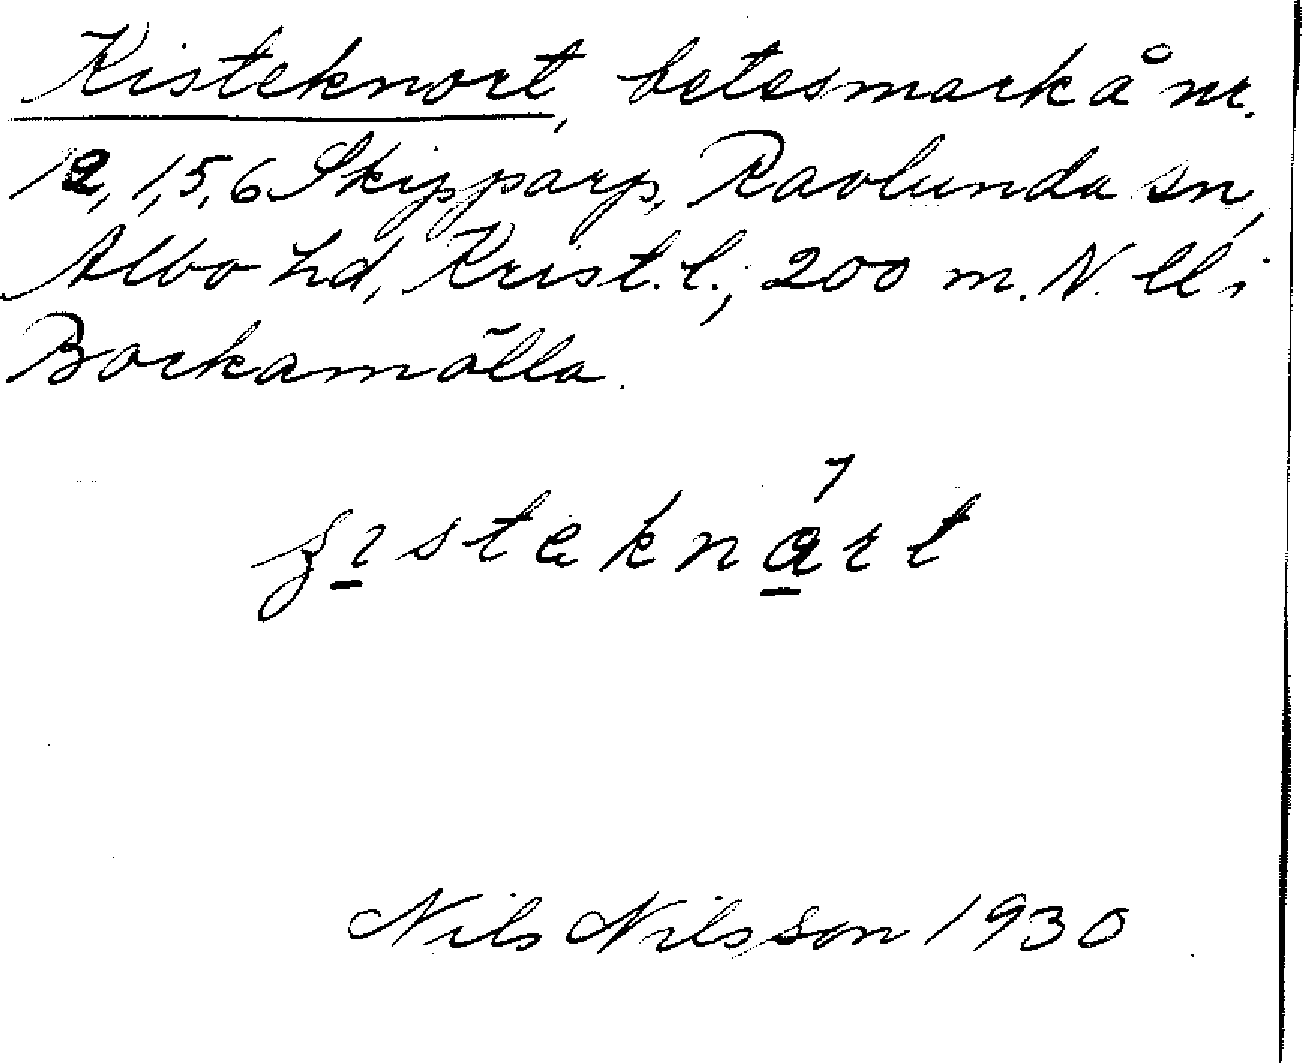 Kisteknort, betesmark å nr.
12, 1, 5, 6 Skipparp, Ravlunda sn,
Albo hd, Krist. l.; 200 m. N.
Bockamölla.
Nils Nilsson 1930